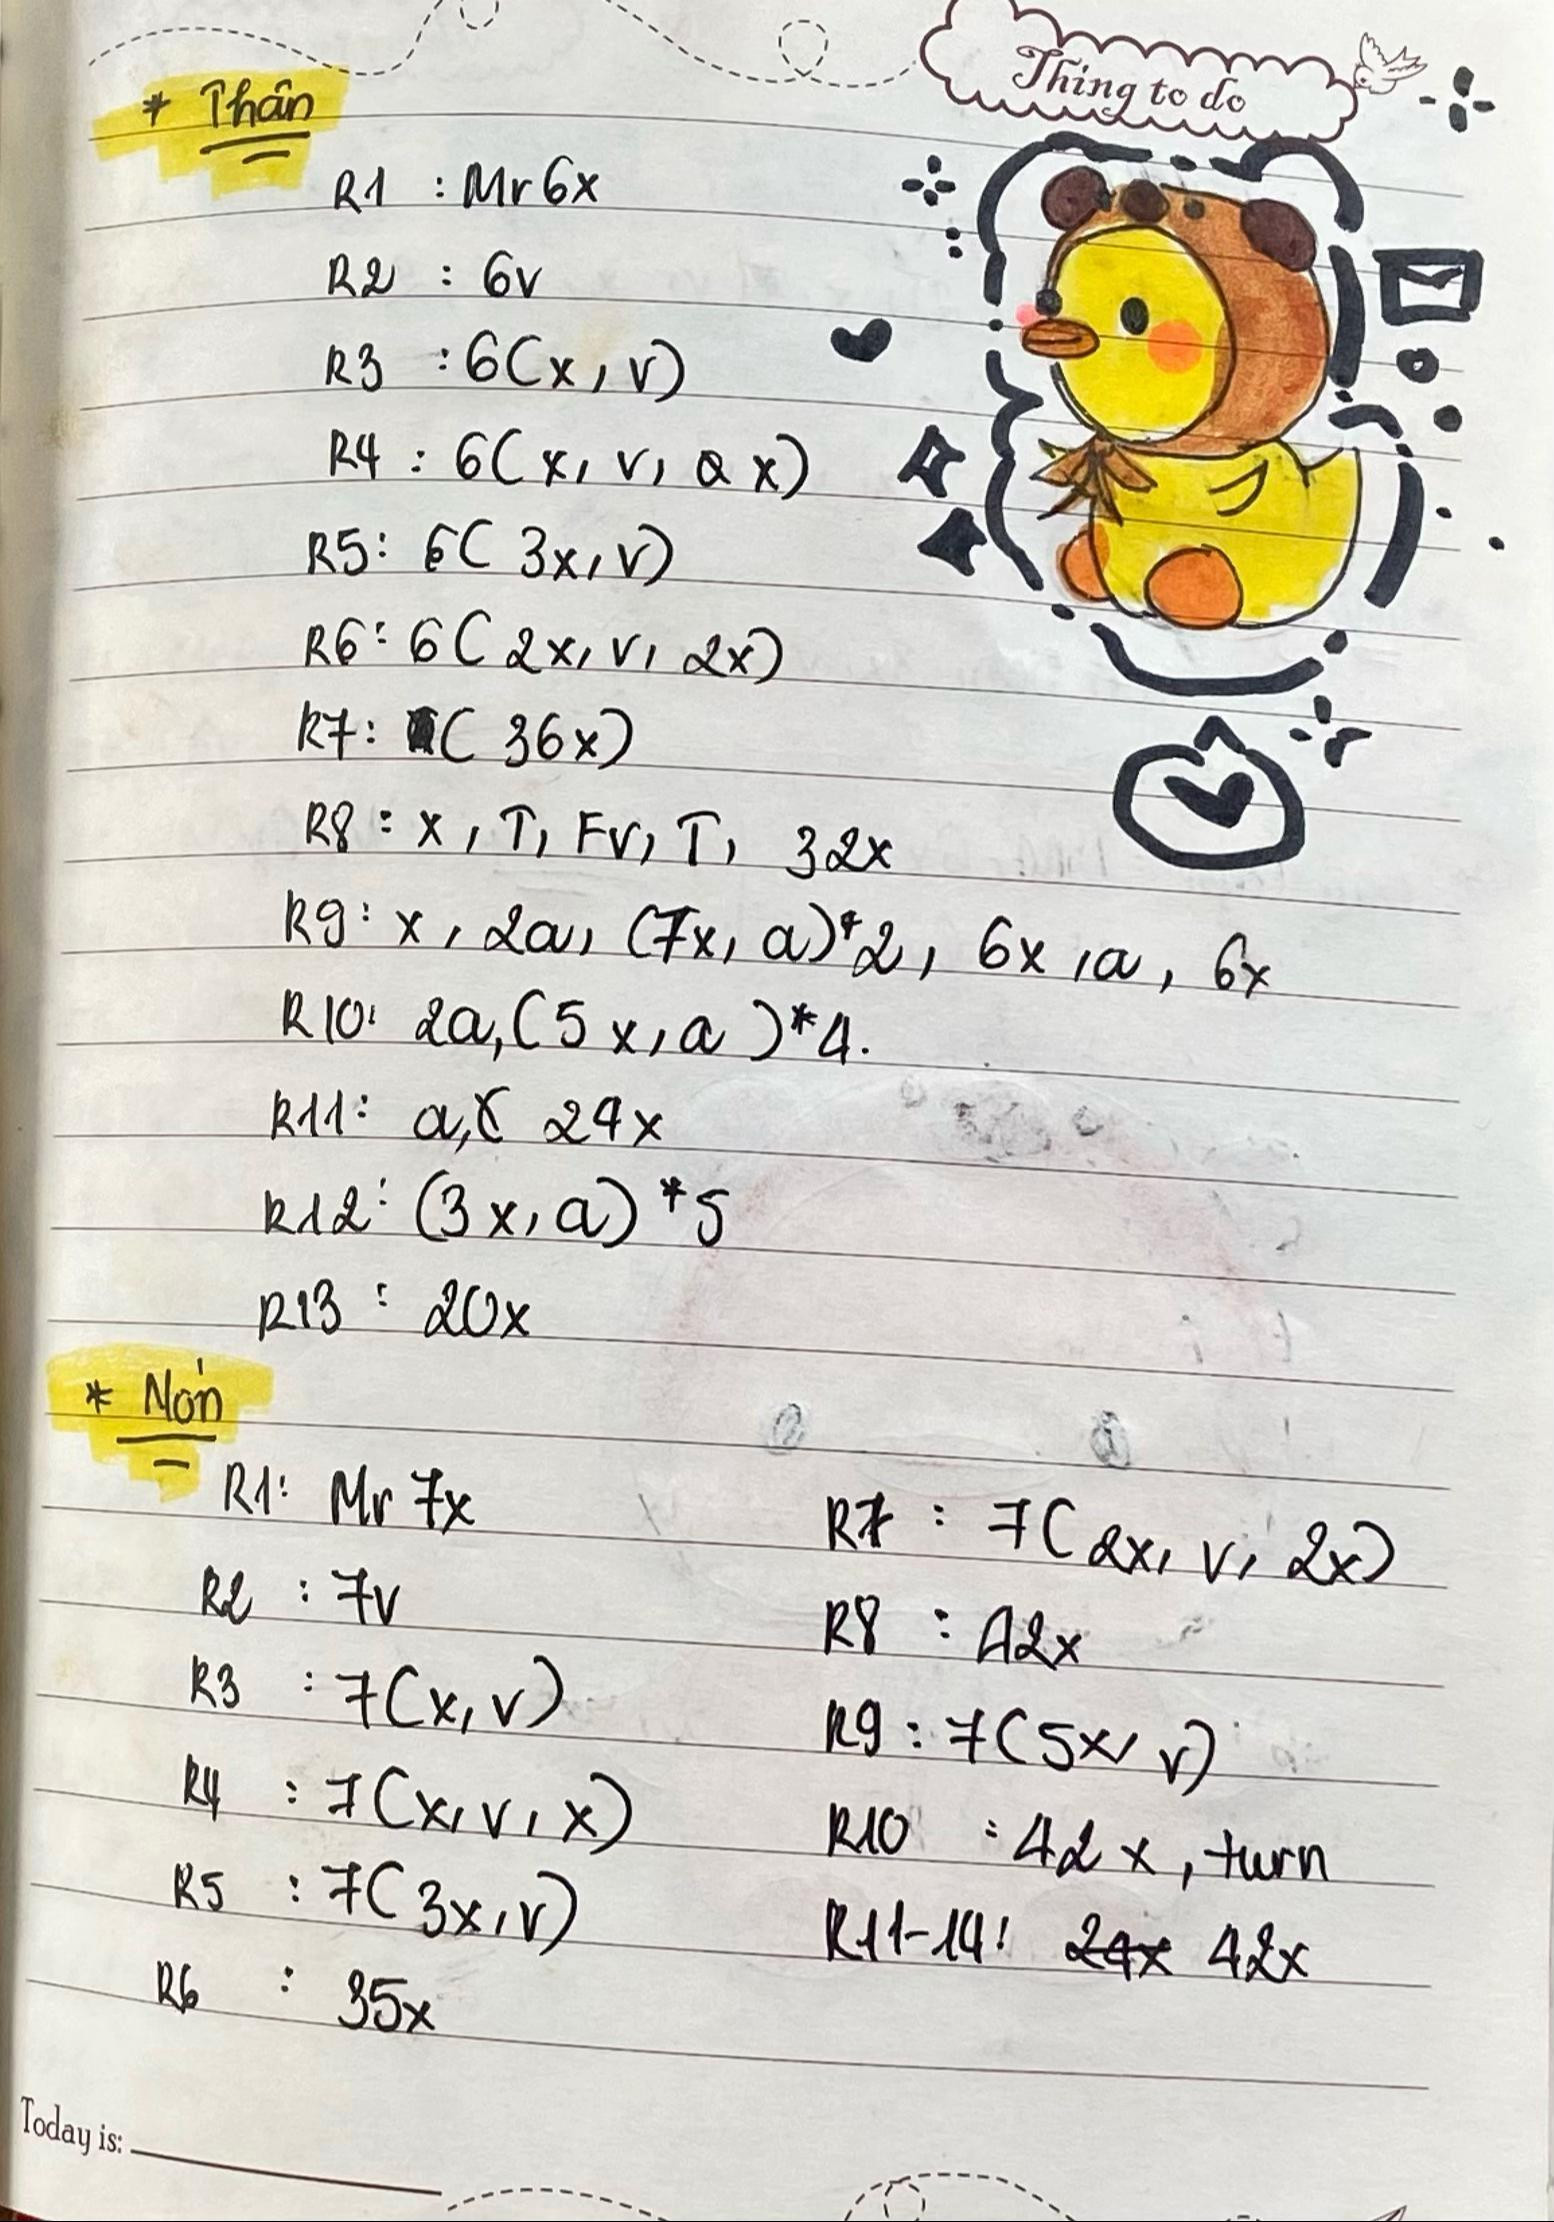 Thing to do
* Thân
R1 : Mr 6x
R2 : 6v
R3 : 6(x, v)
R4 : 6(x, v, 2x)
R5: 6( 3x, v)
R6: 6( 2x, v, 2x)
R7: ( 36x)
R8: x, T, Fv, T, 32x
R9: x, 2a, (7x, a)*2, 6x, a, 6x
R10: 2a, (5x, a)*4.
R11: a, 24x
R12: (3x, a) *5
R13: 20x
* Nón
R1: Mr 7x
R2 : 7v
R3 : 7(x, v)
R4 : 7(x, v, x)
R5 : 7( 3x, v)
R6 : 35x
R7 : 7( 2x, v, 2x)
R8 : A2x
R9 : 7(5x, v)
R10 : 42x, turn
R11-14: 24x 42x
Today is: